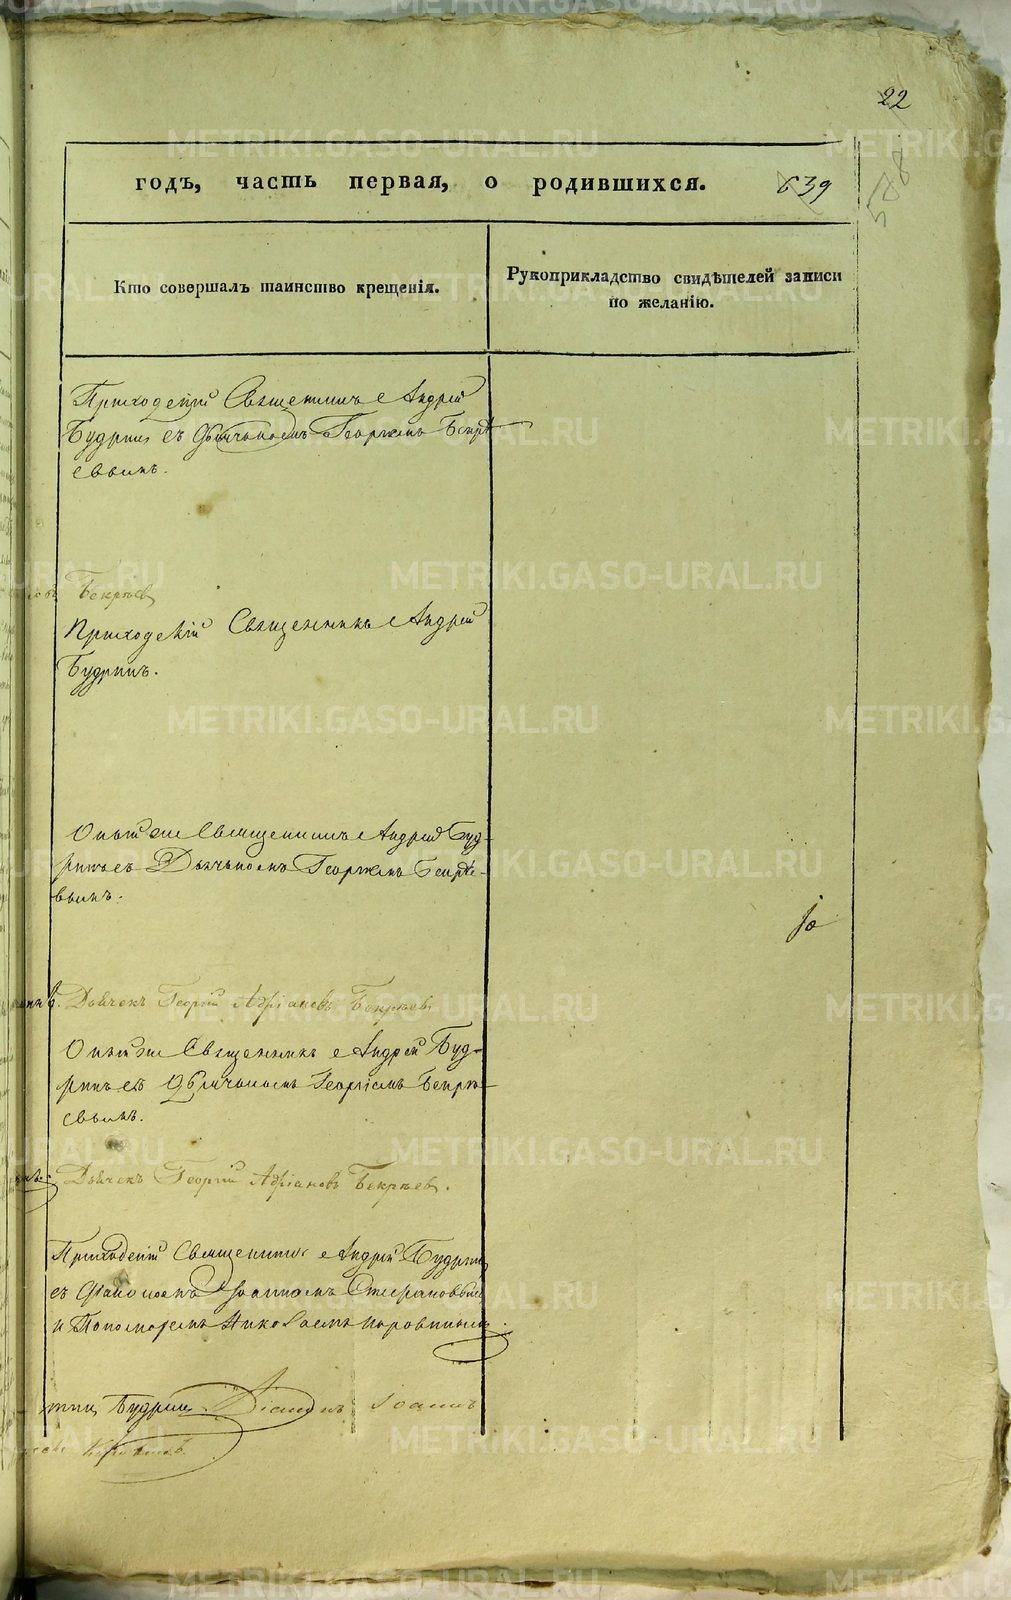 22
годъ, часть первая, о родившихся. 639
588
Кто совершалъ таинство крещенія.
Рукоприкладство свидѣтелей записи
по желанію.
Приходскій Священникъ Андрей
Будринъ съ Дьячькомъ Георгіемъ Бекрѣ
евымъ.
Бекрѣев
Приходскій Священникъ Андрей
Будринъ.
Онъ же Священникъ Андрей Буд-
ринъ съ Дьячькомъ Георгіемъ Бекрѣе-
вымъ.
Дьячекъ Георгій Адріановъ Бекрѣев
Онъ же Священникъ Андрей Буд-
ринъ съ Дьячькомъ Георгіемъ Бекрѣ-
евымъ.
Дьячекъ Георгій Адріановъ Бекрѣев.
Приходскій Священникъ Андрей Будринъ
съ Діакономъ Іоанномъ Стефановымъ
и Пономаремъ Николаемъ Коровинымъ.
Будрин Діаконъ Іоаннъ
METRIKI.GASO-URAL.RU